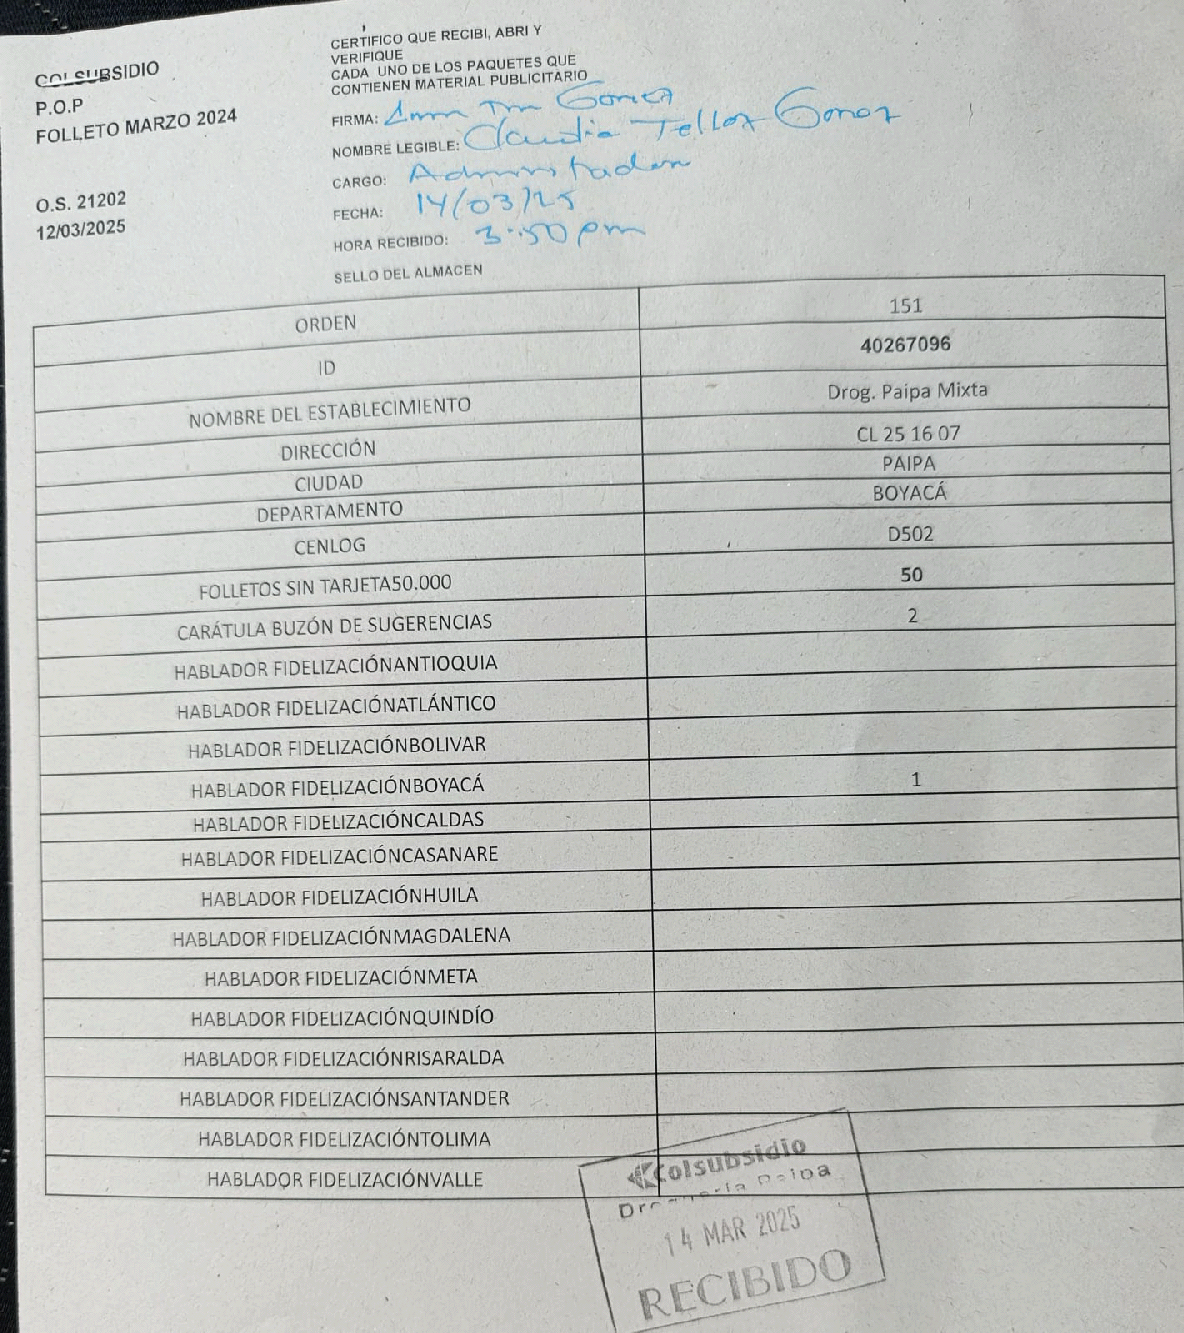 COLSUBSIDIO
P.O.P
FOLLETO MARZO 2024
O.S. 21202
12/03/2025
CERTIFICO QUE RECIBI, ABRI Y
VERIFIQUE
CADA UNO DE LOS PAQUETES QUE
CONTIENEN MATERIAL PUBLICITARIO
FIRMA: Gomez
NOMBRE LEGIBLE: Claudia Tellez Gomez
CARGO: Administrador
FECHA: 14/03/25
HORA RECIBIDO: 3:50 pm
SELLO DEL ALMACEN
ORDEN 151
ID 40267096
NOMBRE DEL ESTABLECIMIENTO Drog. Paipa Mixta
DIRECCIÓN CL 25 16 07
CIUDAD PAIPA
DEPARTAMENTO BOYACÁ
CENLOG D502
FOLLETOS SIN TARJETA50.000 50
CARÁTULA BUZÓN DE SUGERENCIAS 2
HABLADOR FIDELIZACIÓNANTIOQUIA
HABLADOR FIDELIZACIÓNATLÁNTICO
HABLADOR FIDELIZACIÓNBOLIVAR
HABLADOR FIDELIZACIÓNBOYACÁ 1
HABLADOR FIDELIZACIÓNCALDAS
HABLADOR FIDELIZACIÓNCASANARE
HABLADOR FIDELIZACIÓNHUILA
HABLADOR FIDELIZACIÓNMAGDALENA
HABLADOR FIDELIZACIÓNMETA
HABLADOR FIDELIZACIÓNQUINDÍO
HABLADOR FIDELIZACIÓNRISARALDA
HABLADOR FIDELIZACIÓNSANTANDER
HABLADOR FIDELIZACIÓNTOLIMA
HABLADOR FIDELIZACIÓNVALLE
Colsubsidio
Droguería Paipa
14 MAR 2025
RECIBIDO